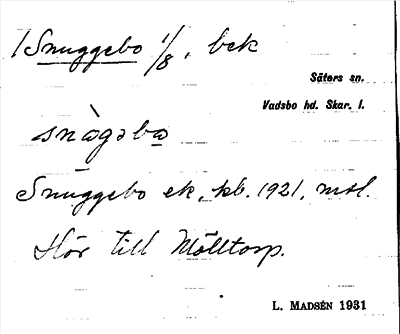 1 Snuggebo 1/8, bek
Säters sn.
Vadsbo hd. Skar. l.
snàgəbo
Snuggebo ek, kb. 1921, mtl.
Hör till Mölltorp.
L. MADSÉN 1931